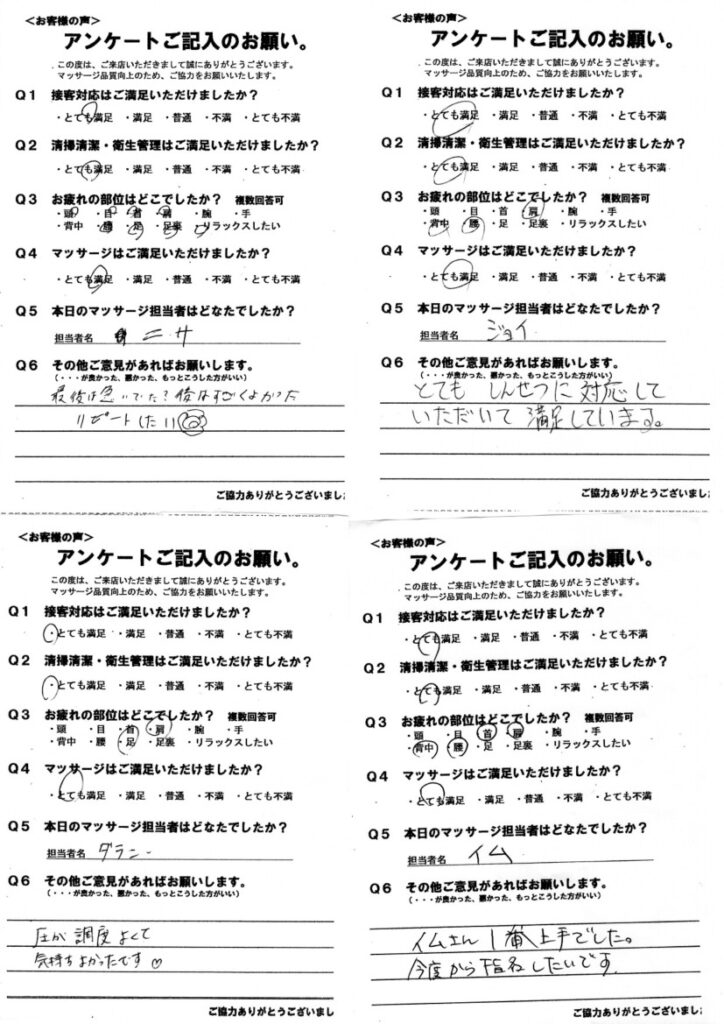 <お客様の声>
アンケートご記入のお願い。
この度は、ご来店いただきまして誠にありがとうございます。
マッサージ品質向上のため、ご協力をお願いいたします。
Q1 接客対応はご満足いただけましたか?
・とても満足 ・満足 ・普通 ・不満 ・とても不満
Q2 清掃清潔・衛生管理はご満足いただけましたか?
・とても満足 ・満足 ・普通 ・不満 ・とても不満
Q3 お疲れの部位はどこでしたか? 複数回答可
・頭 ・目 ・首 ・肩 ・腕 ・手
・背中 ・腰 ・足 ・足裏 ・リラックスしたい
Q4 マッサージはご満足いただけましたか?
・とても満足 ・満足 ・普通 ・不満 ・とても不満
Q5 本日のマッサージ担当者はどなたでしたか?
担当者名 ニサ
Q6 その他ご意見があればお願いします。
(・・・が良かった、悪かった、もっとこうした方がいい)
最後は急いでた?後はすごくよかった
リピートしたい
ご協力ありがとうございまし
<お客様の声>
アンケートご記入のお願い。
この度は、ご来店いただきまして誠にありがとうございます。
マッサージ品質向上のため、ご協力をお願いいたします。
Q1 接客対応はご満足いただけましたか?
・とても満足 ・満足 ・普通 ・不満 ・とても不満
Q2 清掃清潔・衛生管理はご満足いただけましたか?
・とても満足 ・満足 ・普通 ・不満 ・とても不満
Q3 お疲れの部位はどこでしたか? 複数回答可
・頭 ・目 ・首 ・肩 ・腕 ・手
・背中 ・腰 ・足 ・足裏 ・リラックスしたい
Q4 マッサージはご満足いただけましたか?
・とても満足 ・満足 ・普通 ・不満 ・とても不満
Q5 本日のマッサージ担当者はどなたでしたか?
担当者名 ジョイ
Q6 その他ご意見があればお願いします。
(・・・が良かった、悪かった、もっとこうした方がいい)
とても しんせつに 対応して
いただいて 満足しています。
ご協力ありがとうございまし
<お客様の声>
アンケートご記入のお願い。
この度は、ご来店いただきまして誠にありがとうございます。
マッサージ品質向上のため、ご協力をお願いいたします。
Q1 接客対応はご満足いただけましたか?
・とても満足 ・満足 ・普通 ・不満 ・とても不満
Q2 清掃清潔・衛生管理はご満足いただけましたか?
・とても満足 ・満足 ・普通 ・不満 ・とても不満
Q3 お疲れの部位はどこでしたか? 複数回答可
・頭 ・目 ・首 ・肩 ・腕 ・手
・背中 ・腰 ・足 ・足裏 ・リラックスしたい
Q4 マッサージはご満足いただけましたか?
・とても満足 ・満足 ・普通 ・不満 ・とても不満
Q5 本日のマッサージ担当者はどなたでしたか?
担当者名 ダラニー
Q6 その他ご意見があればお願いします。
(・・・が良かった、悪かった、もっとこうした方がいい)
圧が 調度 よくて
気持ちよかったです♡
ご協力ありがとうございまし
<お客様の声>
アンケートご記入のお願い。
この度は、ご来店いただきまして誠にありがとうございます。
マッサージ品質向上のため、ご協力をお願いいたします。
Q1 接客対応はご満足いただけましたか?
・とても満足 ・満足 ・普通 ・不満 ・とても不満
Q2 清掃清潔・衛生管理はご満足いただけましたか?
・とても満足 ・満足 ・普通 ・不満 ・とても不満
Q3 お疲れの部位はどこでしたか? 複数回答可
・頭 ・目 ・首 ・肩 ・腕 ・手
・背中 ・腰 ・足 ・足裏 ・リラックスしたい
Q4 マッサージはご満足いただけましたか?
・とても満足 ・満足 ・普通 ・不満 ・とても不満
Q5 本日のマッサージ担当者はどなたでしたか?
担当者名 イム
Q6 その他ご意見があればお願いします。
(・・・が良かった、悪かった、もっとこうした方がいい)
イムさん 1番上手でした。
今度から指名したいです
ご協力ありがとうございまし